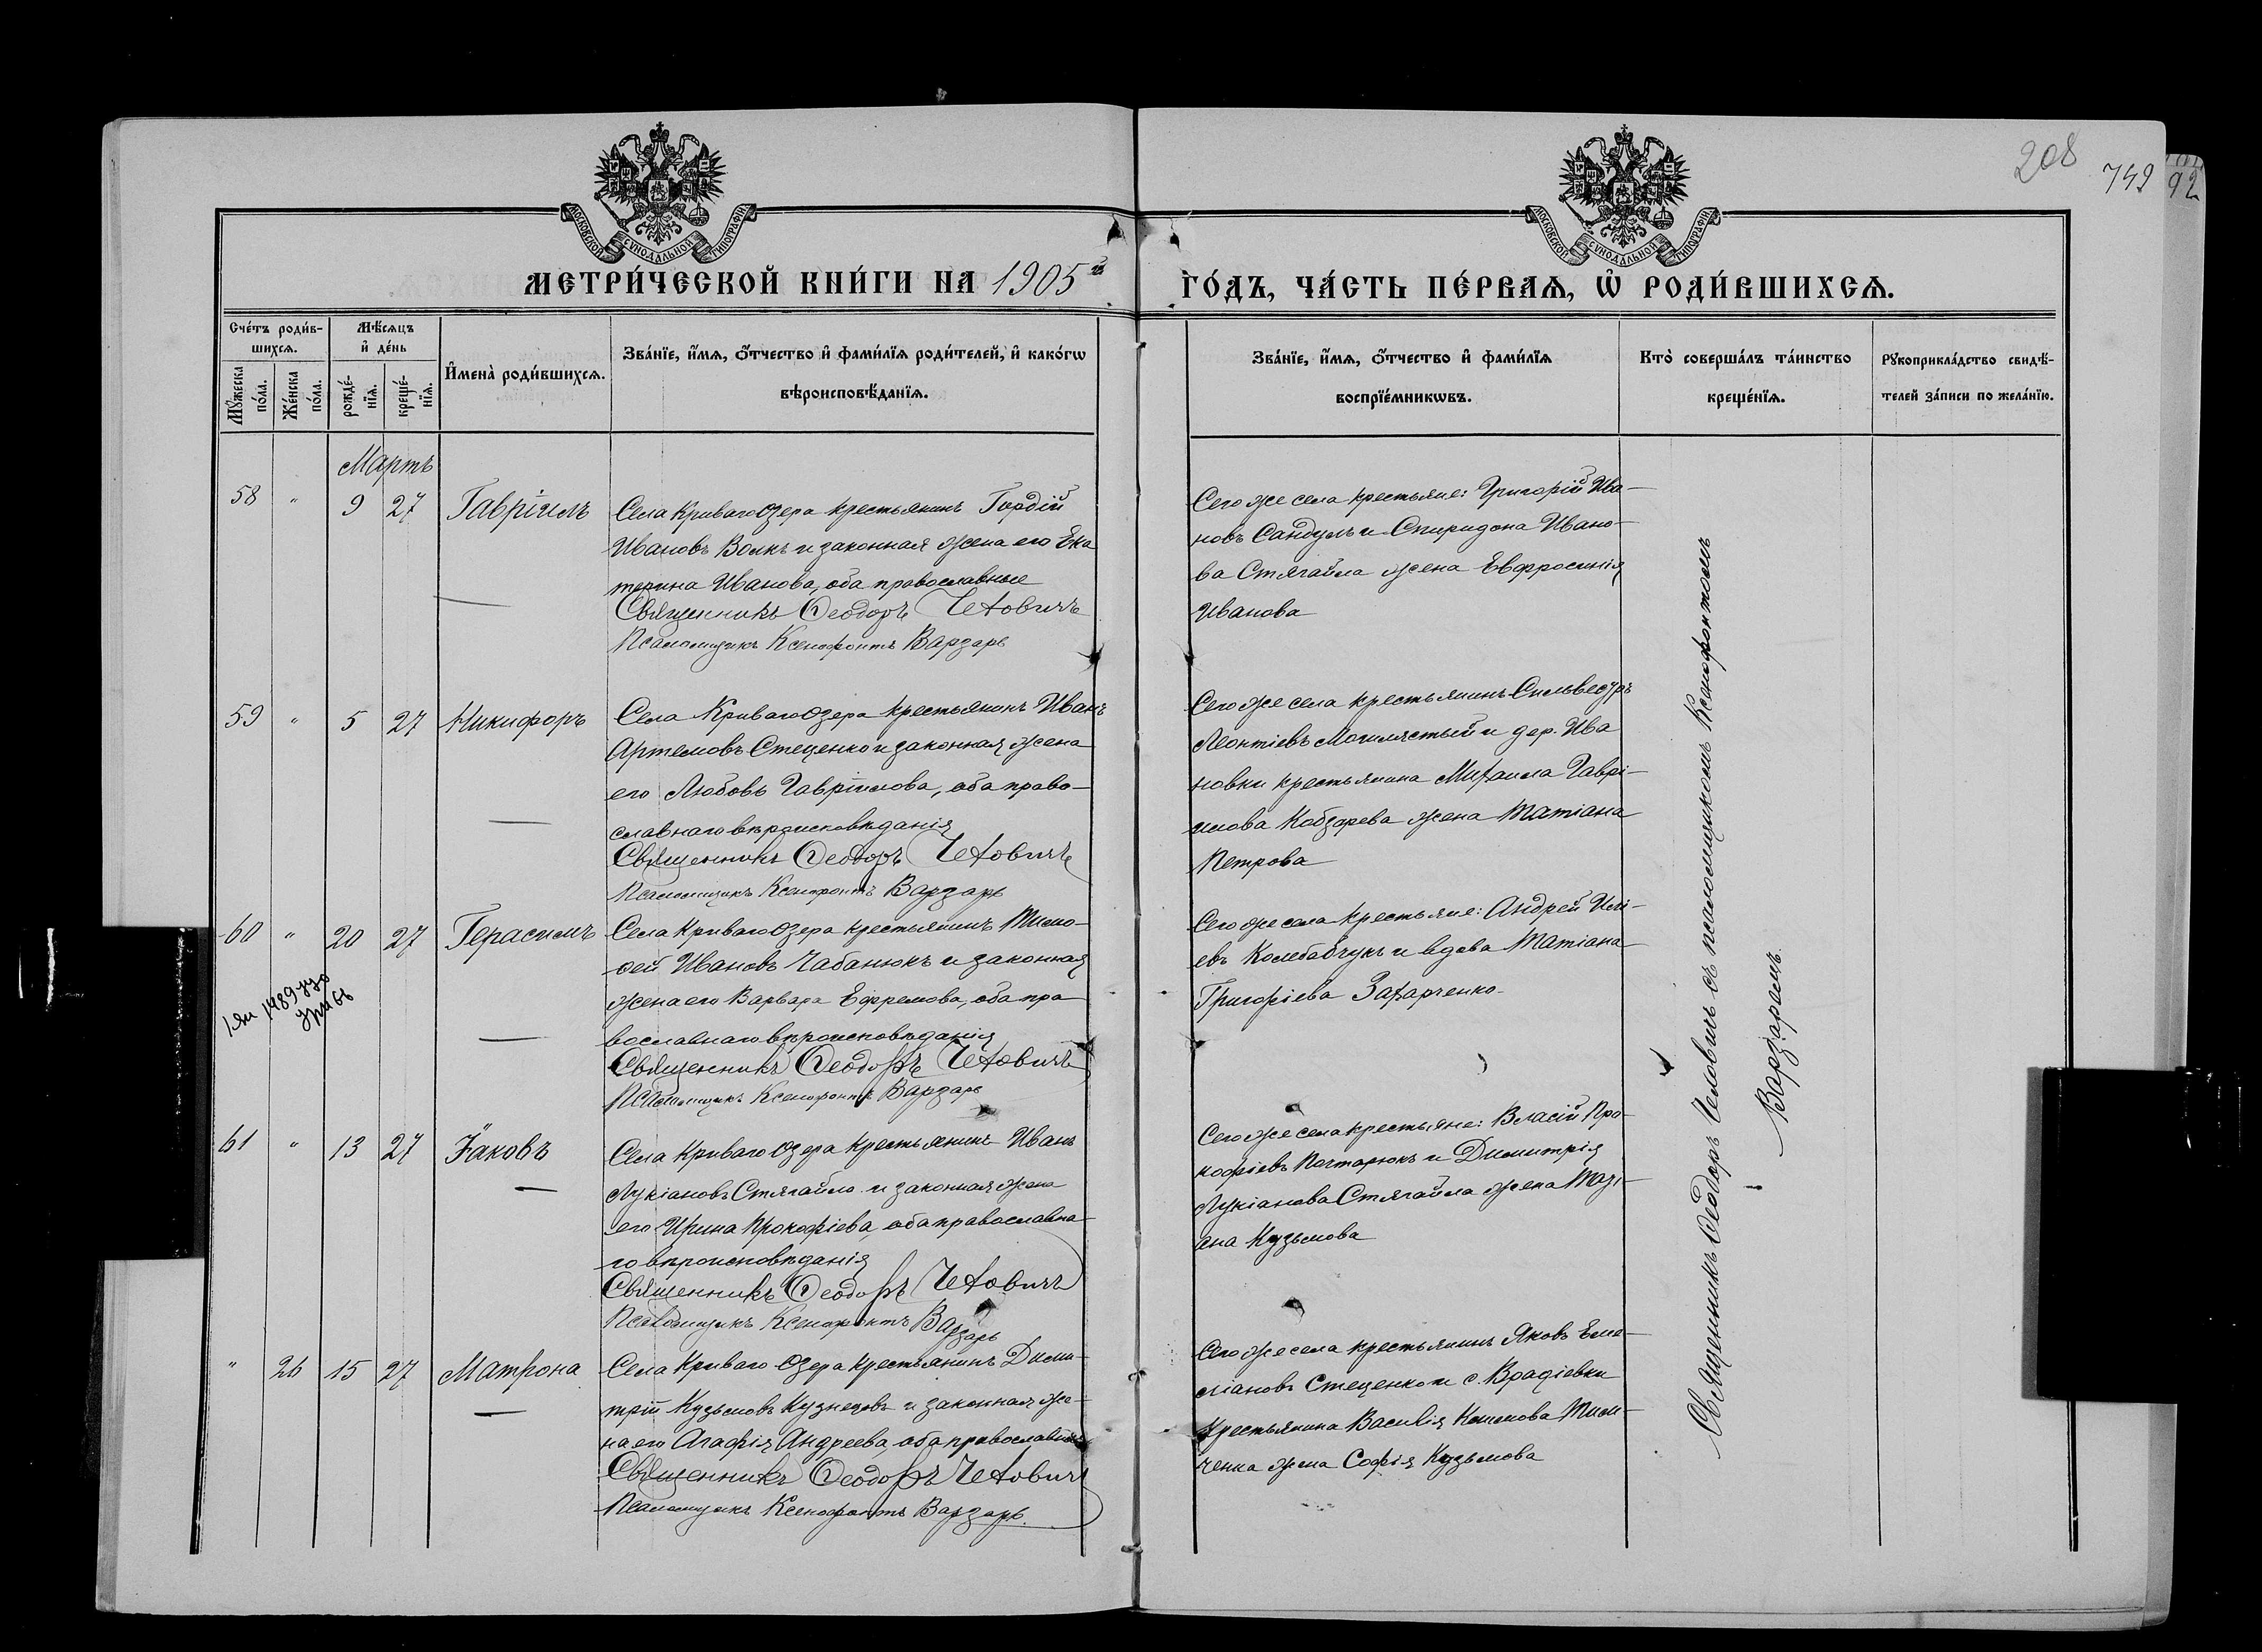 208
749
92
МОСКОВСКОЙ СУНОДАЛЬНОЙ ТИПОГРАФІИ
МОСКОВСКОЙ СУНОДАЛЬНОЙ ТИПОГРАФІИ
МЕТРИ́ЧЕСКОЙ КНИ́ГИ НА 1905й
ГО́ДЪ, ЧА́СТЬ ПЕ́РВАѦ, Ѡ҆ РОДИ́ВШИХСѦ.
Сче́тъ роди́в-
шихсѧ.
Мꙋ́жеска по́ла.
Же́нска по́ла.
Мѣ́сѧцъ
и҆ де́нь
рожде́-
нїѧ.
креще́-
нїѧ.
И҆мена̀ роди́вшихсѧ.
Зва́нїе, и҆́мѧ, ѻ҆́тчество и҆ фами́лїѧ роди́телей, и҆ како́гѡ
вѣроисповѣ́данїѧ.
Зва́нїе, и҆́мѧ, ѻ҆́тчество и҆ фами́лїѧ
воспрїе́мникѡвъ.
Кто̀ соверша́лъ та́инство
креще́нїѧ.
Рꙋкоприкла́дство свидѣ́-
телей за́писи по жела́нїю.
Мартъ
58 " 9 27 Гавріилъ
Села Криваго Озера крестьянинъ Гордій
Ивановъ Волкъ и законная жена его Ека
терина Иванова, оба православные
Священникъ Ѳеодоръ Человичъ
Псаломщикъ Ксенофонтъ Варзарь
Сего же села крестьяне: Григорій Ива-
новъ Сандулъ и Спиридона Ивано-
ва Стягайла жена Евфросинія
Иванова
59 " 5 27 Никифоръ
Села Криваго Озера крестьянинъ Иванъ
Артемовъ Стеценко и законная жена
его Любовь Гавріилова, оба право-
славнаго вѣроисповѣданія
Священникъ Ѳеодоръ Человичъ
Псаломщикъ Ксенофонтъ Варзарь
Сего же села крестьянинъ Сильвестръ
Леонтіевъ Могилястый и дер. Ива
новки крестьянина Михаила Гаврі-
илова Кобзарева жена Татіана
Петрова
60 " 20 27 Герасимъ
Села Криваго Озера крестьянинъ Тимо-
ѳей Ивановъ Чабанюкъ и законная
жена его Варвара Ефремова, оба пра
вославнаго вѣроисповѣданія
Священникъ Ѳеодоръ Человичъ
Псаломщикъ Ксенофонтъ Варзарь
Сего же села крестьяне: Андрей Илі-
евъ Колебабчукъ и вдова Татіана
Григоріева Захарченко
61 " 13 27 Іаковъ
Села Криваго Озера крестьянинъ Иванъ
Лукіановъ Стягайло и законная жена
его Ирина Прокофіева, оба православна-
го вѣроисповѣданія
Священникъ Ѳеодоръ Человичъ
Псаломщикъ Ксенофонтъ Варзарь
Сего же села крестьяне: Власій Про-
кофіевъ Почтарюкъ и Димитрія
Лукіанова Стягайла жена Таті-
ана Кузьмова
" 26 15 27 Матрона
Села Криваго Озера крестьянинъ Дими-
трій Кузьмовъ Кузнецовъ и законная же-
на его Агафія Андреева, оба православные
Священникъ Ѳеодоръ Человичъ
Псаломщикъ Ксенофонтъ Варзарь
Сего же села крестьянинъ Яковъ Еме-
ліановъ Стеценко и с. Врадіевки
крестьянина Василія Климова Тим-
ченка жена Софія Кузьмова
Священникъ Ѳеодоръ Человичъ съ псаломщикомъ Ксенофонтомъ
Варзаремъ